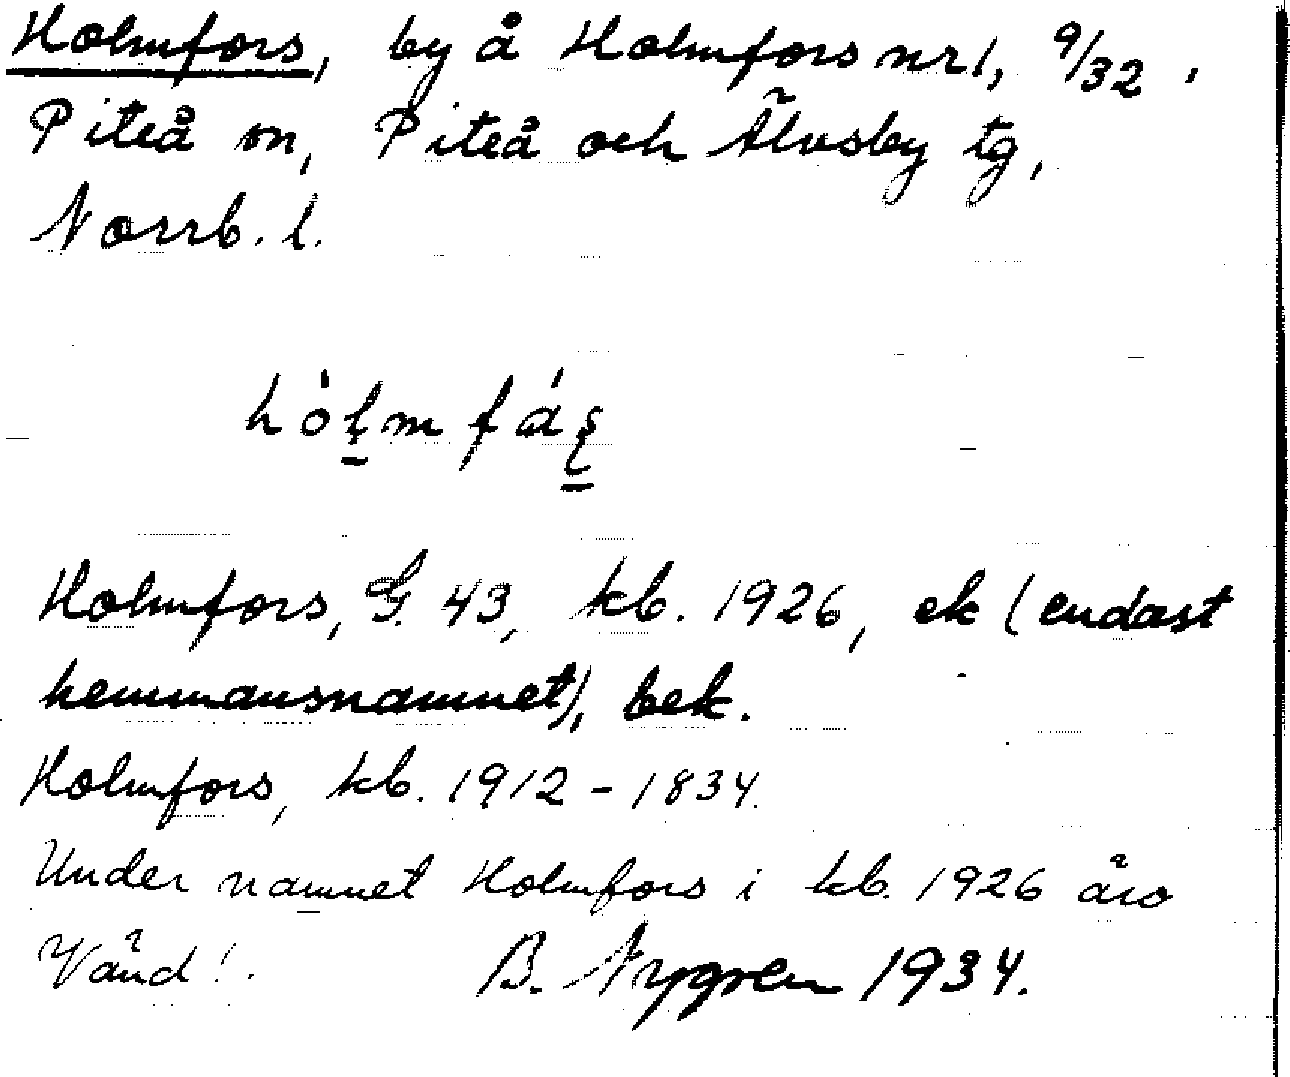 Holmfors, by å Holmfors nr 1, 9/32,
Piteå sn, Piteå och Älvsby tg,
Norrb. l.
Holmfors, G. 43, kb. 1926, ek (endast
hemmansnamnet), bek.
Holmfors, kb. 1912 - 1834.
Under namnet Holmfors i kb. 1926 äro
Vänd!. B. Nygren 1934.